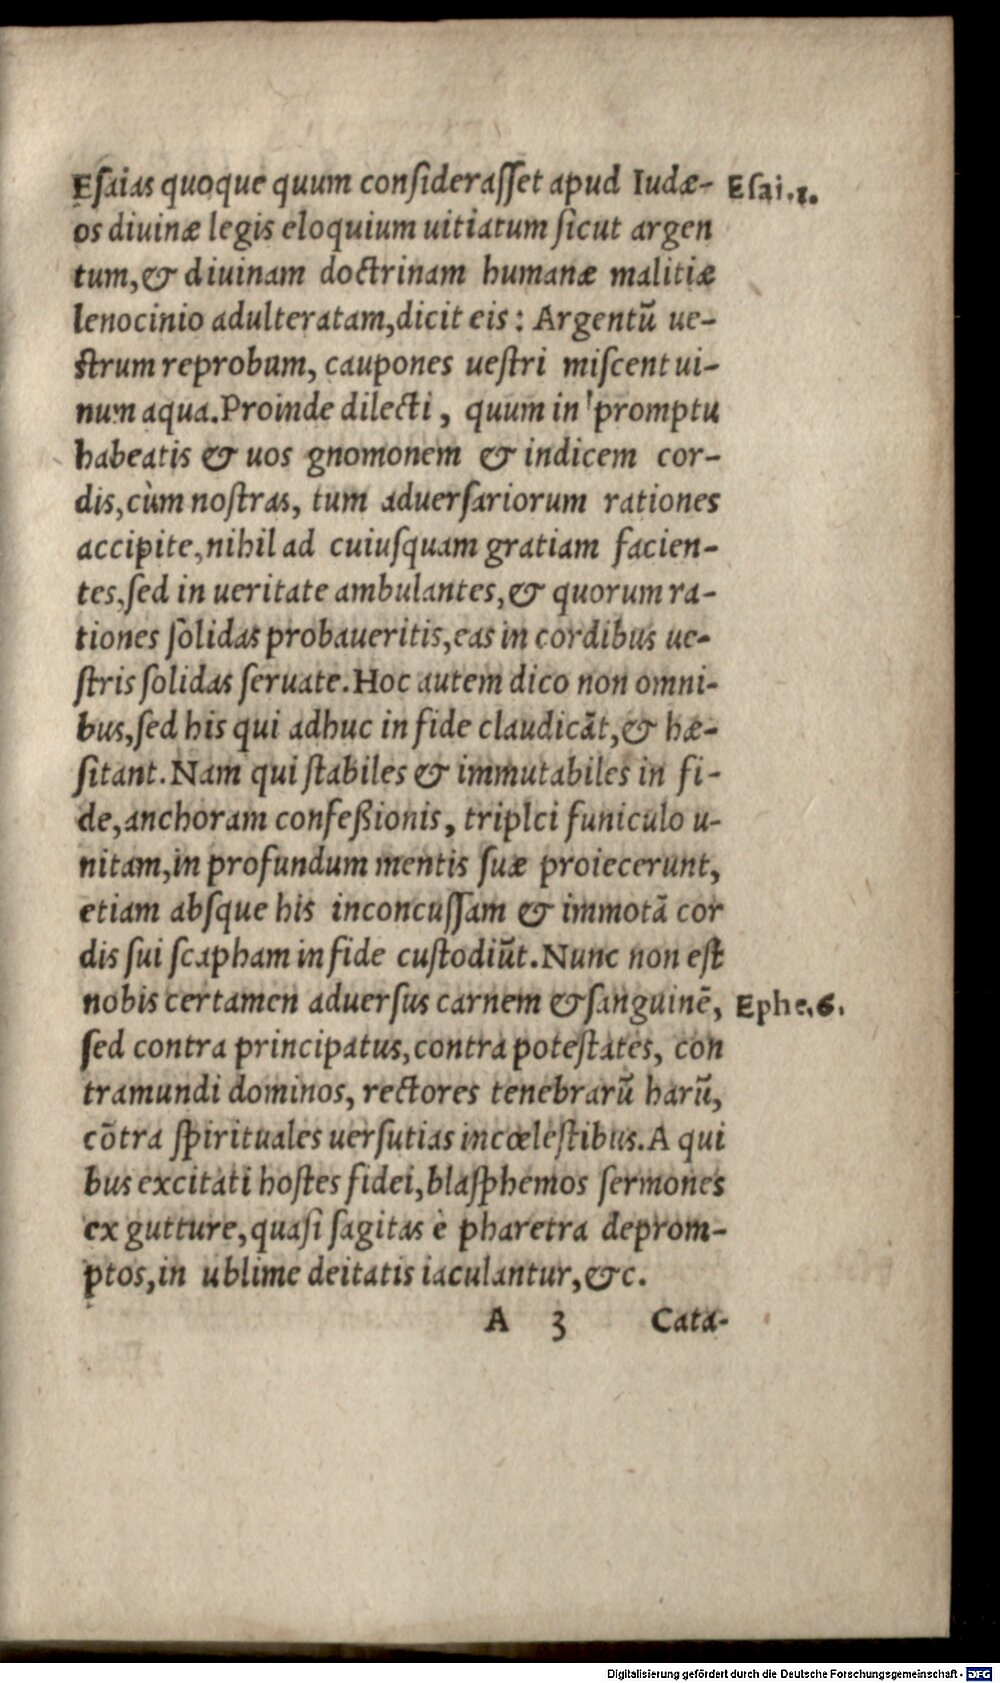 Eſaias quoque quum conſideraſſet apud Iudæ- Eſai.1.
os diuinæ legis eloquium uitiatum ſicut argen
tum,& diuinam doctrinam humanæ malitiæ
lenocinio adulteratam,dicit eis: Argentũ ue-
ſtrum reprobum, caupones ueſtri miſcent ui-
num aqua.Proinde dilecti, quum in promptu
habeatis & uos gnomonem & indicem cor-
dis,cùm noſtras, tum aduerſariorum rationes
accipite,nihil ad cuiuſquam gratiam facien-
tes,ſed in ueritate ambulantes,& quorum ra-
tiones ſolidas probaueritis,eas in cordibus ue-
ſtris ſolidas ſeruate.Hoc autem dico non omni-
bus,ſed his qui adhuc in fide claudicãt,& hæ-
ſitant.Nam qui ſtabiles & immutabiles in fi-
de,anchoram confeßionis, triplci funiculo u-
nitam,in profundum mentis ſuæ proiecerunt,
etiam abſque his inconcuſſam & immotã cor
dis ſui ſcapham in fide cuſtodiũt.Nunc non eſt
nobis certamen aduerſus carnem & ſanguinẽ, Ephe.6.
ſed contra principatus,contra poteſtates, con
tra mundi dominos, rectores tenebrarũ harũ,
cõtra ſpirituales uerſutias in cœleſtibus.A qui
bus excitati hoſtes fidei,blaſphemos ſermones
ex gutture,quaſi ſagitas è pharetra deprom-
ptos,in ublime deitatis iaculantur,&c.
A 3 Cata-
Digitalisierung gefördert durch die Deutsche Forschungsgemeinschaft - DFG